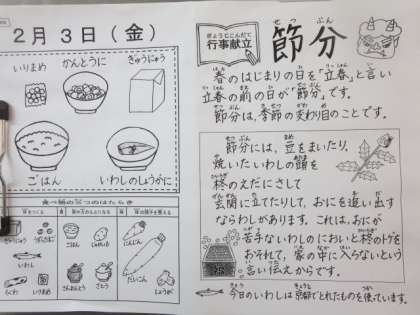 2月3日(金)
いりまめ
かんとうに
ぎゅうにゅう
ごはん
いわしのしょうがに
食べ物の三つのはたらき
ぎゅうにゅう
いわし
ちくわ
いりまめ
ごはん
じゃがいも
さんおんとう
さとう
にんじん
だいこん
しょうが
ぎょうじこんだて
行事献立
せつ ぶん
節分
春のはじまりの日を「立春」と言い
立春の前の日が「節分」です。
節分は、季節の変わり目のことです。
節分には、豆をまいたり、
焼いたいわしの頭を
柊のえだにさして
玄関に立てたりして、おにを追い出す
ならわしがあります。これは、おにが
苦手ないわしのにおいと柊のトゲを
おそれて、家の中に入らないという
言い伝えからです。
今日のいわしは京都でとれたものを使っています。